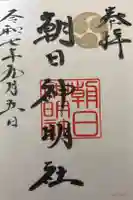 奉拝
朝日神明社
朝日
神明
令和七年九月五日